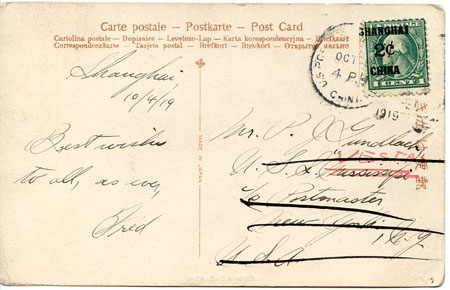 Carte postale – Postkarte – Post Card
Cartolina postale – Dopisnice – Levelezo-Lap – Karta korespondencyjna – Briefkaart
Correspondenzkarte – Tarjeta postal – Brefkort – Brevkort – Открытое письмо
SHANGHAI
2¢
CHINA
U.S. POSTAL
OCT
4 P
CHINA
1919
Shanghai
10/4/19
Best wishes
to all, as ever,
Fred
MADE IN JAPAN
Mr. P. Gundlach
U. S. S.
VESTAL
c/o Postmaster
New York, N.Y.
U.S.A